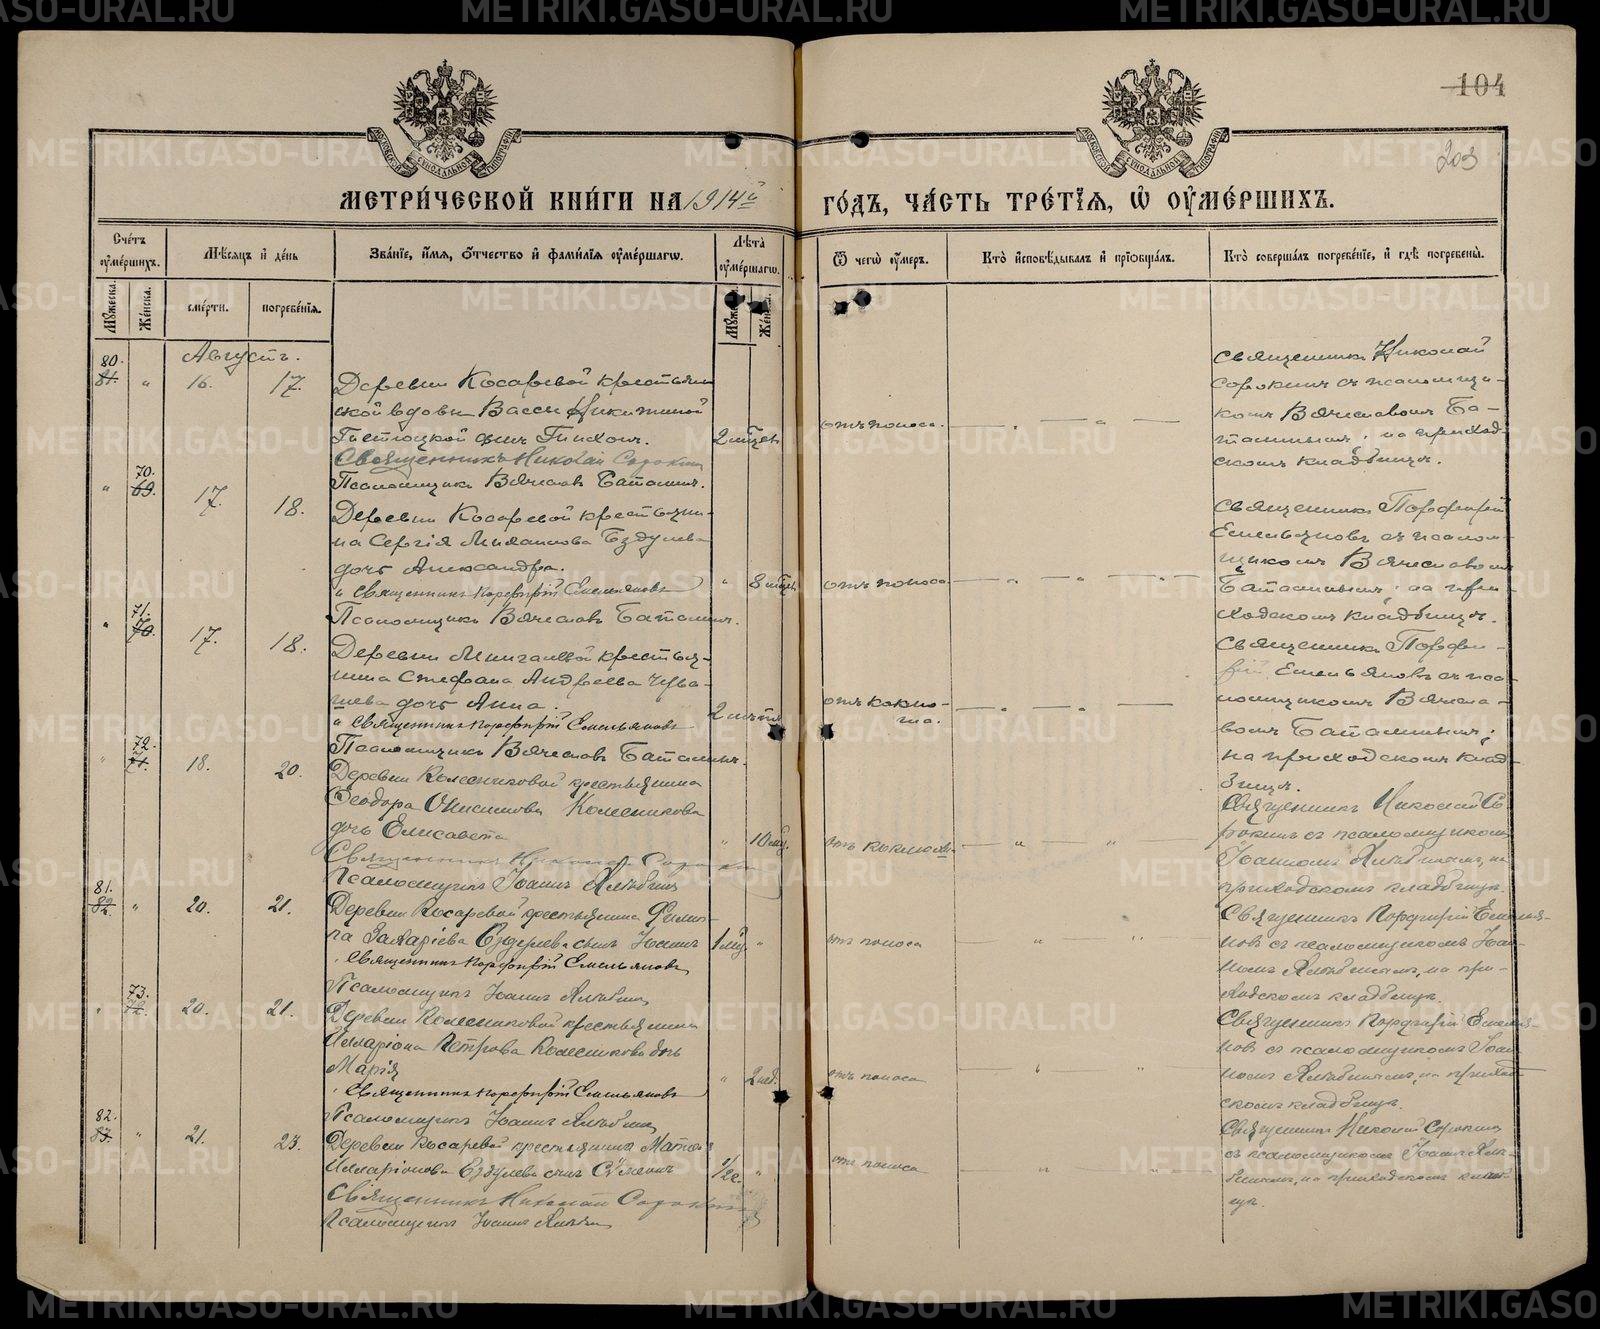 104
203
МЕТРИЧЕСКОЙ КНИГИ НА 1914й ГОДЪ, ЧАСТЬ ТРЕТІЯ, Ѡ ОУМЕРШИХЪ.
Счетъ оумершихъ.
Мѣсяцъ и день
Званіе, имя, отчество и фамилія оумершагѡ.
Лѣта оумершагѡ.
Ѿ чегѡ оумеръ.
Кто исповѣдывалъ и пріобщалъ.
Кто совершалъ погребеніе, и гдѣ погребены.
Мужеска.
Женска.
смерти.
погребенія.
Августъ.
80.
81. " 16. 17.
Деревни Косаревой крестьян
ской вдовы Вассы Никитиной
сынъ Тихонъ.
Священникъ Николай Сорокин
Псаломщикъ Вячеславъ Баталинъ.
отъ поноса.
Священникъ Николай
Сорокинъ съ псаломщи-
комъ Вячеславомъ Ба-
талинымъ; на приход-
скомъ кладбищѣ.
70.
" 69. 17. 18.
Деревни Косаревой крестьяни-
на Сергія Михаилова Бздулева
дочь Александра.
" Священникъ Порфирій Емельяновъ
Псаломщикъ Вячеславъ Баталинъ.
" 8 мѣсяц
отъ поноса
Священникъ Порфирій
Емельяновъ съ псалом-
щикомъ Вячеславомъ
Баталинымъ; на при
ходскомъ кладбищѣ.
71.
" 70. 17. 18.
Деревни крестья-
нина Стефана Андреева Чува-
шева дочь Анна.
" Священникъ Порфирій Емельяновъ
Псаломщикъ Вячеславъ Баталинъ.
2 лѣтъ
отъ коклю-
ша.
Священникъ Порфи-
рій Емельяновъ съ пса-
ломщикомъ Вячесла-
вомъ Баталинымъ;
на приходскомъ клад-
бищѣ.
72.
" 71. 18. 20.
Деревни Колесниковой крестьянина
Ѳеодора Онисимова Колесникова
дочь Елисавета
Священникъ Николай Сорокин
Псаломщикъ Іоаннъ
" 10 мѣ.
отъ коклюша
Священникъ Николай Со
рокинъ съ псаломщикомъ
Іоанномъ на
приходскомъ кладбищѣ.
81.
82. " 20. 21.
Деревни Косаревой крестьянина Филип-
па Захаріева Бздулева сынъ Іоаннъ
" Священникъ Порфирій Емельяновъ
Псаломщикъ Іоаннъ
1 мѣ. "
отъ поноса
Священникъ Порфирій Емелья-
новъ съ псаломщикомъ Іоан-
номъ на при-
ходскомъ кладбищѣ.
73.
" 72. 20. 21.
Деревни Колесниковой крестьянина
Илларіона Петрова Колесникова дочь
Марія
" Священникъ Порфирій Емельяновъ
Псаломщикъ Іоаннъ
" 2 нед.
отъ поноса
Священникъ Порфирій Емелья
новъ съ псаломщикомъ Іоан
номъ на приход
скомъ кладбищѣ.
82.
83. " 21. 23.
Деревни Косаревой крестьянина
Илларіонова Бздулева сынъ Сѵмеонъ
Священникъ Николай Сорокинъ
Псаломщикъ Іоаннъ
отъ поноса
Священникъ Николай Сорокинъ
съ псаломщикомъ Іоанн
на приходскомъ кладб
ищѣ.
METRIKI.GASO-URAL.RU